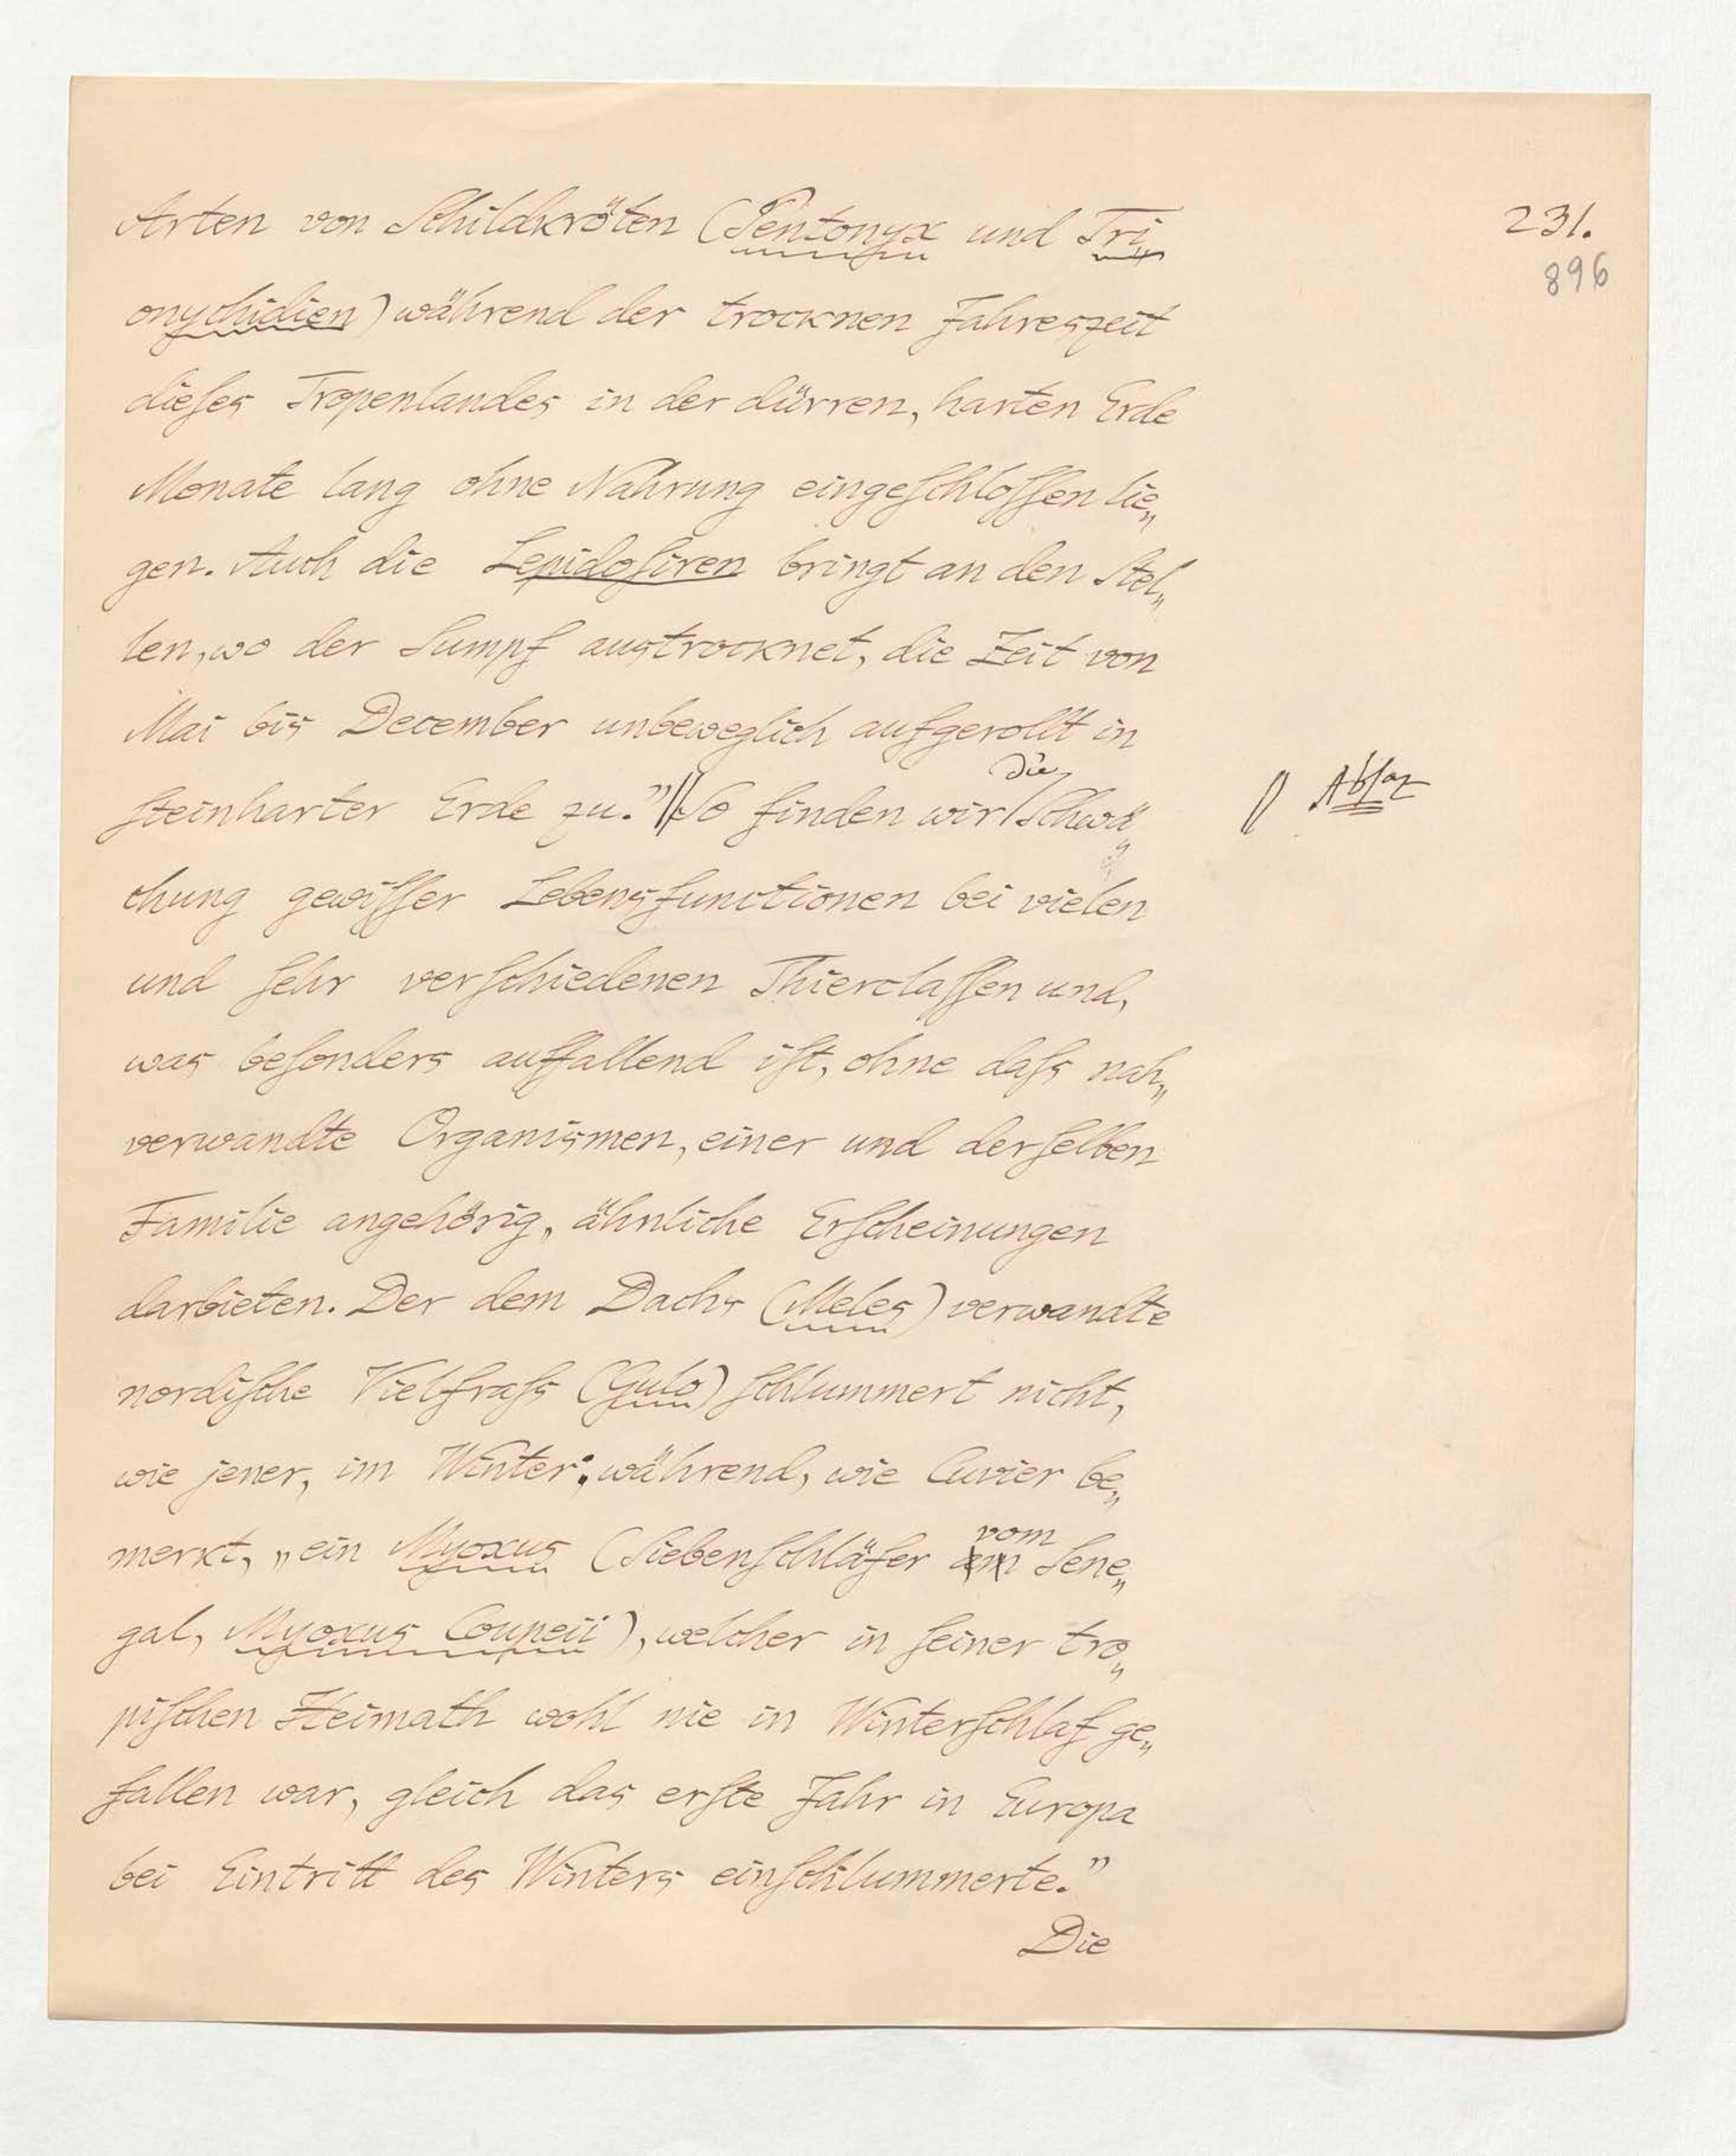 231.
896
Arten von Schildkröten (Pentonyx und Tri„
onychidien) während der trocknen Jahreszeit
dieſes Tropenlandes in der dürren, harten Erde
Monate lang ohne Nahrung eingeſchloſſen lie„
gen. Auch die Lepidoſiren bringt an den Stel„
len, wo der Sumpf austrocknet, die Zeit von
Mai bis December unbeweglich aufgerollt in
die
ſteinharter Erde zu.” || So finden wir / Schwä„
|| Absaz
chung gewiſſer Lebensfunctionen bei vielen
und ſehr verſchiedenen Thierclaſſen und,
was beſonders auffallend iſt, ohne daſs nah„
verwandte Organismen, einer und derſelben
Familie angehörig, ähnliche Erſcheinungen
darbieten. Der dem Dachs (Meles) verwandte
nordiſche Vielfraſs (Gulo) ſchlummert nicht,
wie jener, im Winter; während, wie Cuvier be„
vom
merkt, „ein Myoxus (Siebenſchläfer am Sene„
gal, Myoxus Coupeii), welcher in ſeiner tro„
piſchen Heimath wohl nie in Winterſchlaf ge„
fallen war, gleich das erſte Jahr in Europa
bei Eintritt des Winters einſchlummerte.”
Die